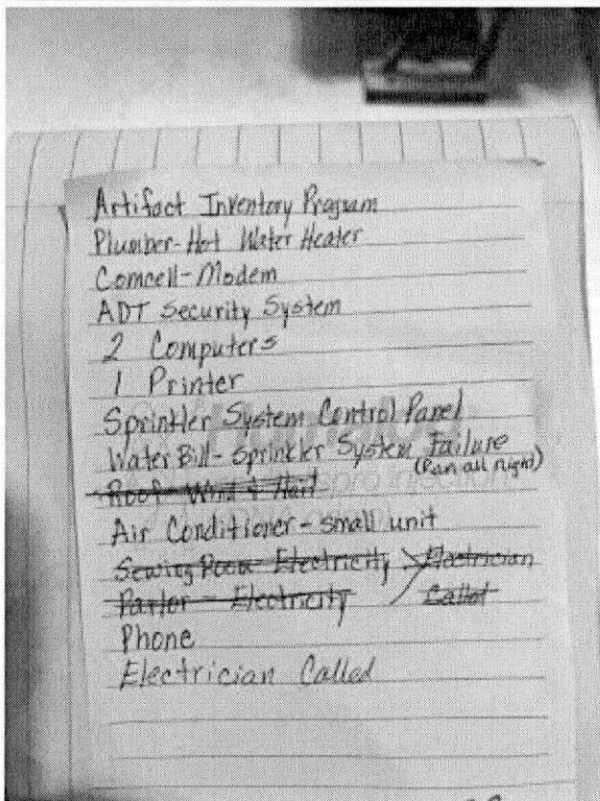 Artifact Inventory Program
Plumber-Hot Water Heater
Comcell-Modem
ADT Security System
2 Computers
1 Printer
Sprinkler System Control Panel
Water Bill- Sprinkler System Failure
(Ran all night)
Roof- Wind & Hail
Air Conditioner - small unit
Sewing Room Electricity Electrician
Parlor - Electricity Called
Phone
Electrician Called